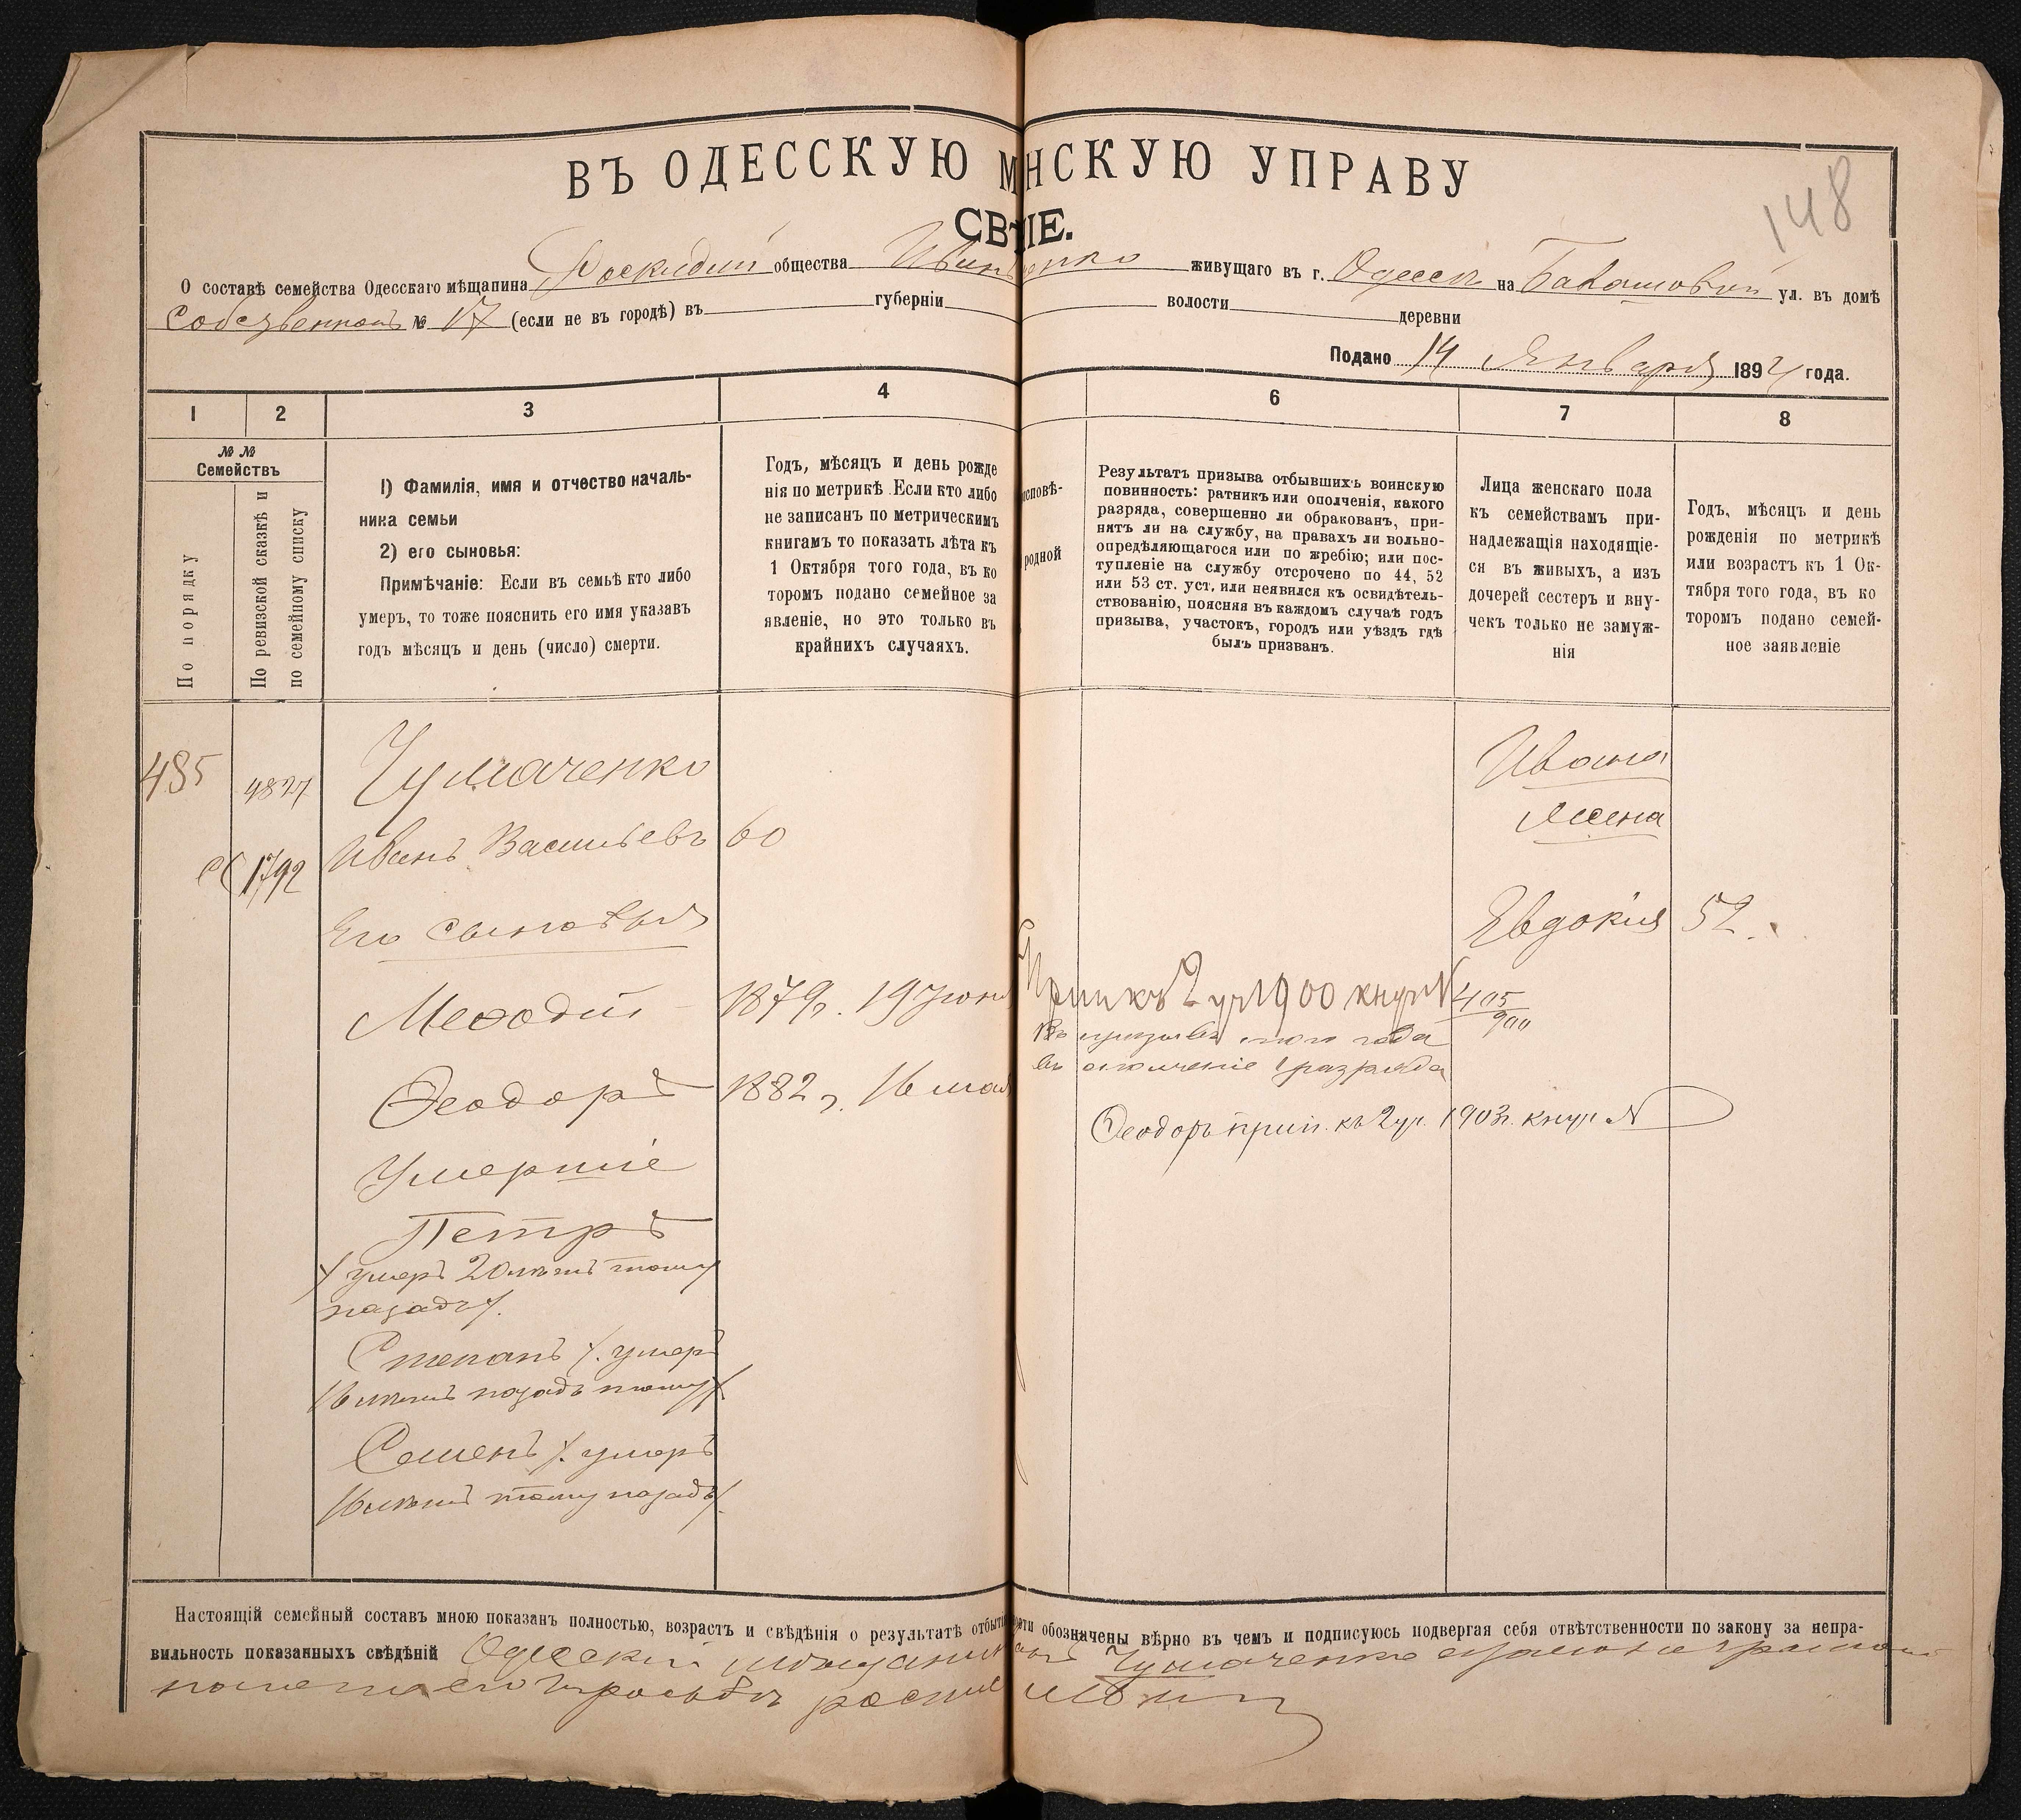 148
ВЪ ОДЕССКУЮ М НСКУЮ УПРАВУ
СВ НІЕ.
О составѣ семейства Одесскаго мѣщанина общества живущаго въ г. Одессѣ на ул. въ домѣ
Собственномъ № 17 (если не въ городѣ) въ губерніи волости деревни
Подано 14 Января 189 года.
1 2 3 4 6 7 8
№ №
Семействъ
По порядку
По ревизской сказкѣ и
по семейному списку
1) Фамилія, имя и отчество началь-
ника семьи
2) его сыновья:
Примѣчаніе: Если въ семьѣ кто либо
умеръ, то тоже пояснить его имя указавъ
годъ мѣсяцъ и день (число) смерти.
Годъ, мѣсяцъ и день рожде
нія по метрикѣ Если кто либо
не записанъ по метрическимъ
книгамъ то показать лѣта къ
1 Октября того года, въ ко
торомъ подано семейное за
явленіе, но это только въ
крайнихъ случаяхъ.
исповѣ-
родной
Результатъ призыва отбывшихъ воинскую
повинность: ратникъ или ополченія, какого
разряда, совершенно ли обракованъ, при-
нятъ ли на службу, на правахъ ли вольно-
опредѣляющагося или по жребію; или пос-
тупленіе на службу отсрочено по 44, 52
или 53 ст. уст, или неявился къ освидѣтель-
ствованію, поясняя въ каждомъ случаѣ годъ
призыва, участокъ, городъ или уѣздъ гдѣ
былъ призванъ.
Лица женскаго пола
къ семействамъ при-
надлежащія находящіе-
ся въ живыхъ, а изъ
дочерей сестеръ и вну-
чекъ только не замуж-
нія
Годъ, мѣсяцъ и день
рожденія по метрикѣ
или возрастъ къ 1 Ок-
тября того года, въ ко
торомъ подано семей-
ное заявленіе
485 4827 Чумаченко Ивана
Жена
1792 Иванъ Васильевъ 60
Его сыновья Евдокія 52.
Меѳодій 1879г. 19 Іюня
Прип къ 2 уч 1900 к № 405/900
въ призывѣ года
въ ополченіе 1 разряда
Ѳеодоръ 1882 г. 16 мая
Ѳеодоръ прип. къ 2 уч. 1903г. №
Умершіе
Петръ
/умеръ 20 лѣтъ тому
назадъ/.
Степанъ /. умеръ
16 лѣтъ назадъ тому/
Семенъ /. умеръ
16 лѣтъ тому назадъ/.
Настоящій семейный составъ мною показанъ полностью, возрастъ и свѣдѣнія о результатѣ отбыт ости обозначены вѣрно въ чемъ и подписуюсь подвергая себя отвѣтственности по закону за непра-
вильность показанныхъ свѣдѣній Одесскій мѣщанинъ Чумаченко
его просьбѣ